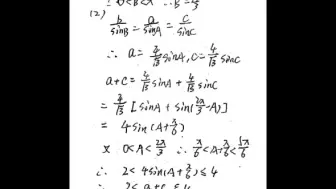 ∵ 0<B<π ∴ B=π/3
(2) b/sinB = a/sinA = c/sinC
∴ a = 4/√3 sinA, c = 4/√3 sinC
a+c = 4/√3 sinA + 4/√3 sinC
= 4/√3 [sinA + sin(2π/3 - A)]
= 4 sin(A+π/6)
又 0<A<2π/3 ∴ π/6<A+π/6<5π/6
∴ 2< 4sin(A+π/6) ≤ 4
∴ 2< a+c ≤ 4